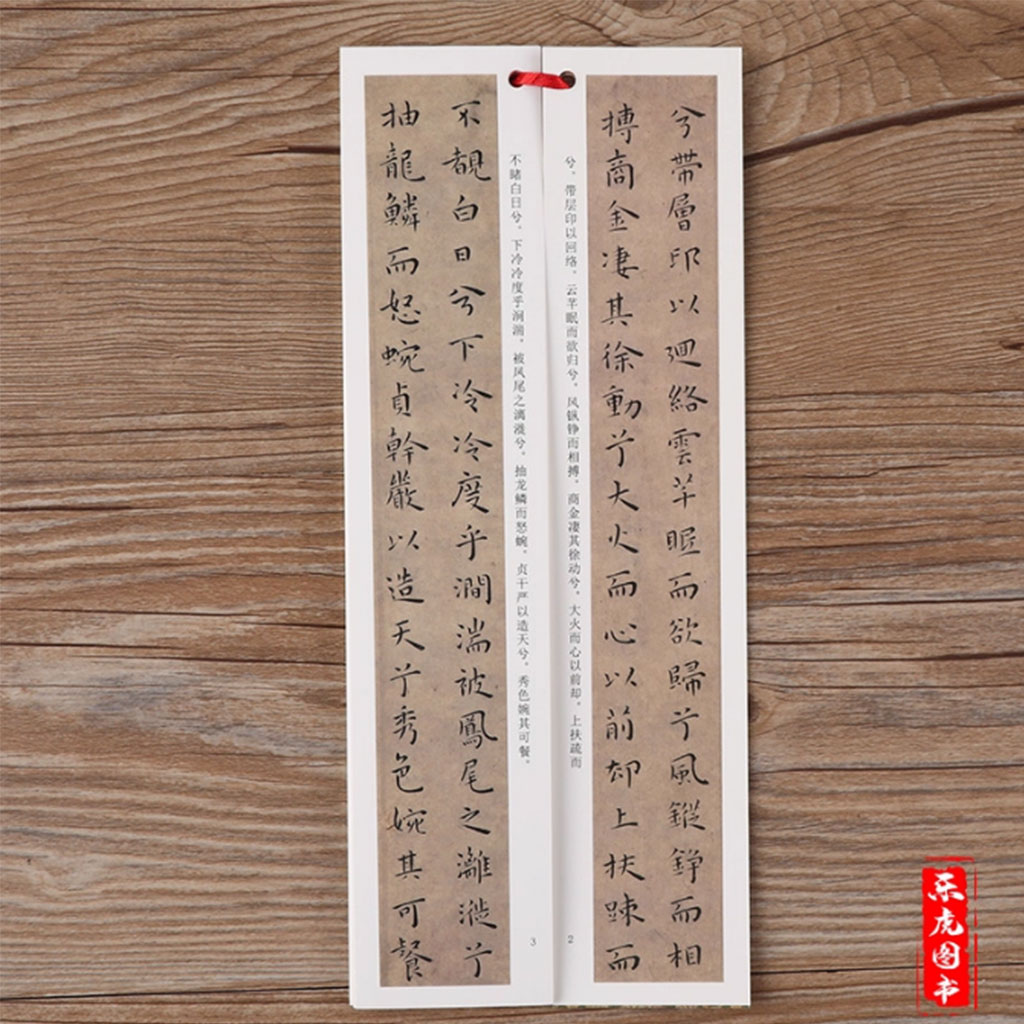 兮帶層印以迴絡雲芊眠而欲歸兮風鏦錚而相
搏商金凄其徐動兮大火而心以前却上扶踈而
兮，带层印以回络。云芊眠而欲归兮，风鏦铮而相搏。商金凄其徐动兮，大火而心以前却。上扶疏而
2
不覩白日兮下冷冷度乎澗湍被鳳尾之灕漇兮
抽龍鱗而怒蜿貞幹嚴以造天兮秀色婉其可餐
不睹白日兮，下冷冷度乎涧湍。被凤尾之漓漇兮，抽龙鳞而怒蜿。贞干严以造天兮，秀色婉其可餐。
3
乐虎图书